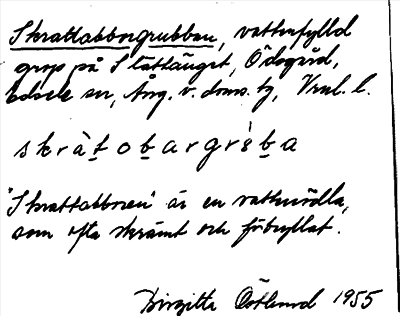 Skrattabborgrubban, vattenfylld
grop på Slåttänget, Ödsgård,
Edsele sn, Ång. v. doms. tg, Vnl. l.
skràtobargrèba
"Skrattabboren" är en vattenödla,
som ofta skrämt och förbryllat.
Birgitta Östlund 1955